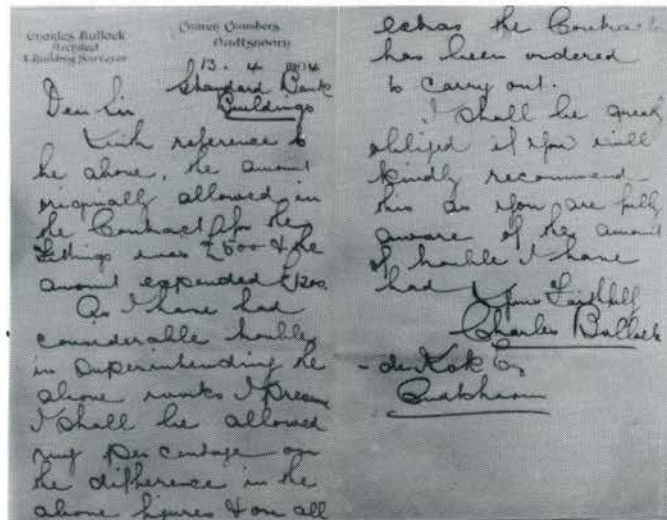 Charles Bullock
Architect
& Building Surveyor
Chambers
Oudtshoorn
13. 4 1904
Standard Bank
Buildings
Dear Sir
With reference to
the above, the amount
originally allowed in
the Contract for the
fittings was £500 & the
amount expended £1200.
As I have had
considerable trouble
in superintending the
above works I presume
I shall be allowed
my percentage on
the difference in the
above figures & on all
extras the Contractor
has been ordered
to carry out.
I shall be greatly
obliged if you will
kindly recommend
this as you are fully
aware of the amount
of trouble I have
had
Yours Faithfully
Charles Bullock
- de Kok Esq